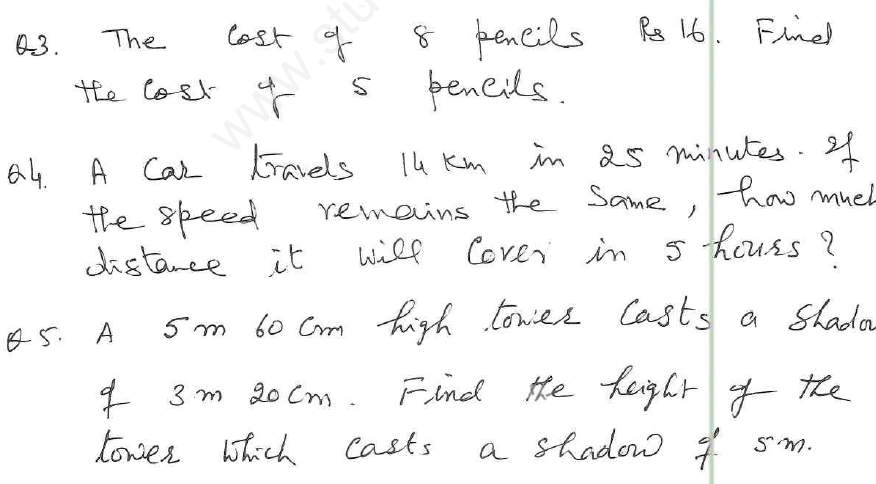 Q3. The Cost of 8 pencils Rs 16. Find
the Cost of 5 pencils.
Q4. A Car travels 14 Km in 25 minutes. If
the speed remains the Same, how much
distance it will Cover in 5 hours?
Q5. A 5m 60 Cm high tower Casts a Shado
of 3m 20 Cm. Find the height of the
tower which casts a shadow of 5m.
www.stu